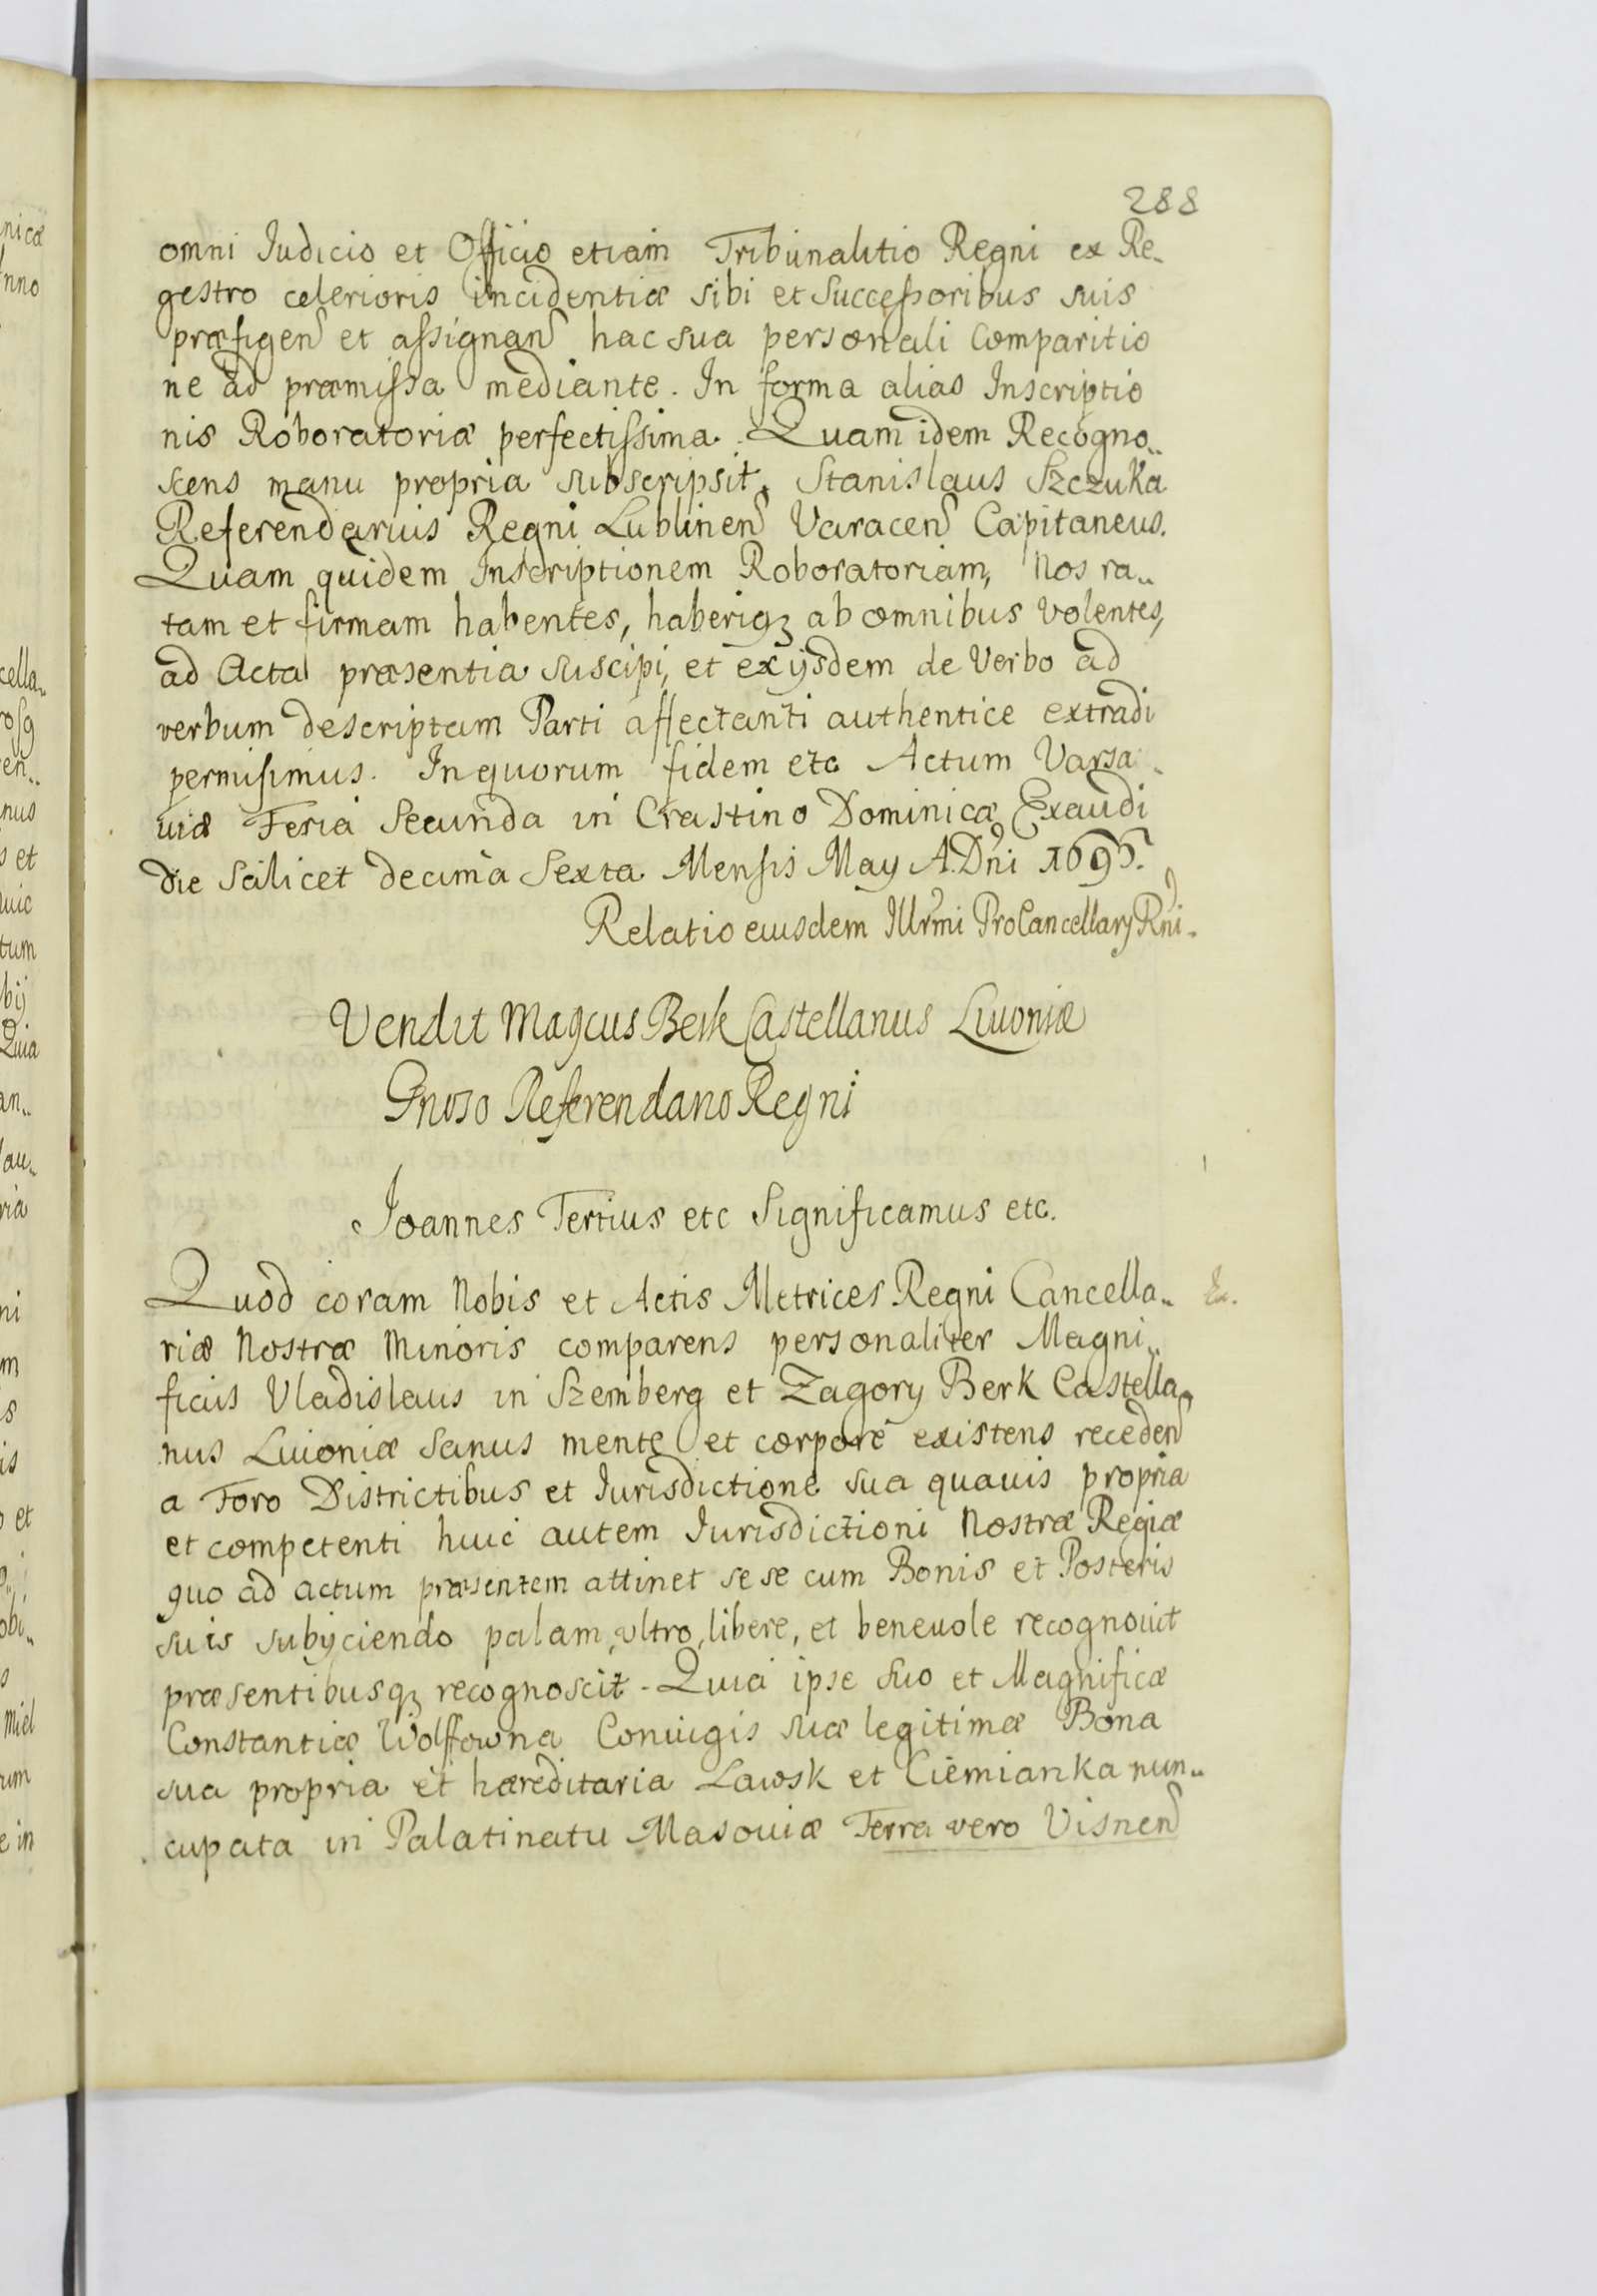 288
omni Iudicio et Officio etiam Tribunalitio Regni ex Re-
gestro celerioris incidentiæ sibi et Successoribus suis
præfigen et assignan hac sua personali Comparitio
ne ad præmissa mediante. In forma alias Inscriptio
nis Roboratoriæ perfectissima. Quam idem Recogno-
scens manu propria subscripsit. Stanislaus Szczuka
Referendarius Regni Lublinen Varacen Capitaneus.
Quam quidem Inscriptionem Roboratoriam, Nos ra-
tam et firmam habentes, haberiqz ab omnibus volentes,
ad Acta præsentia suscipi, et exijsdem de Verbo ad
verbum descriptam Parti affectanti authentice extradi
permisimus. In quorum fidem etc Actum Varsa-
uiæ Feria Secunda in Crastino Dominicæ Exaudi
die scilicet decima Sexta Mensis May A. Dni 1695.
Relatio eiusdem Illrmi ProCancellarij Rni.
Vendit Magcus Berk Castellanus Liuoniæ
Gnoso Referendario Regni
Ioannes Tertius etc Significamus etc.
Quod coram Nobis et Actis Metrices Regni Cancella-
riæ Nostræ Minoris comparens personaliter Magni-
ficus Vladislaus in Szemberg et Zagory Berk Castella-
nus Liuoniæ sanus mente et corpore existens receden
a Foro Districtibus et Iurisdictione sua quauis propria
et competenti huic autem Iurisdictioni Nostræ Regiæ
quo ad actum præsentem attinet se se cum Bonis et Posteris
suis subijciendo palam, ultro, libere, et beneuole recognouit
præsentibusqz recognoscit. Quia ipse suo et Magnificæ
Constantiæ Wolffowna Coniugis suæ legitimæ Bona
sua propria et hæreditaria Lawsk et Ciemianka nun-
cupata in Palatinatu Masouiæ Terra vero Visnen